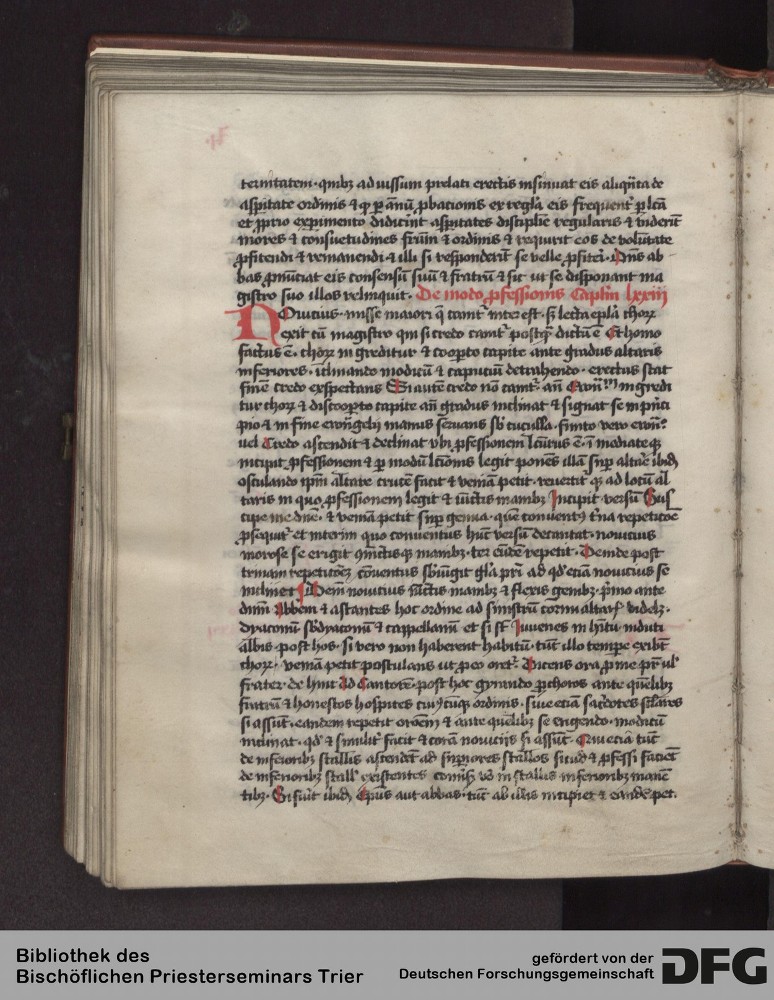 ternitatem · quibꝫ ad iussum prelati erectis insinuat eis aliqͣnta de
aspitate ordinis ⁊ ꝙ ꝑ ānū ꝓbacionis ex regla eis frequent᷑ ꝑ lcā
et ꝓprio expimento didicint aspitates discipline regularis ⁊ viderīt
mores ⁊ consuetudines frūm ⁊ ordinis ⁊ requirit eos de volūtate
ꝓfitendi ⁊ remanendi ⁊ illi si responderīt se velle ꝓfiteri · Dn̄s ab
bas ꝓnūciat eis consensū suū ⁊ fratrū ⁊ sic ut se disponant ma
gistro suo illos relinquit · De modo ꝓfessionis Caplm lxxiij
Nouicius · misse maiori q̄ cantat᷑ interest · sꝫ lecta epla chorꝫ
exit cū magistro qui si credo cantat᷑ postqͣ dictū ē Et homo
factus ē · chorꝫ ingreditur ⁊ cooꝑto capite ante gradus altaris
inferiores · inclinando modicū ⁊ capuciū detrahendo · erectus stat
finē credo exspectans Si autē credo nō cantat᷑ · an̄ Ewangͫ ingredi
tur chorꝫ ⁊ discooꝑto capite an̄ gradus inclinat ⁊ signat se in pͥnci
pio ⁊ in fine ewngelij manus seruans sb cuculla · finito vero ewnᵒ
uel Credo ascendit ⁊ declinat vbi ꝓfessionem lcūrus ē · īmediateqꝫ
incipit ꝓfessionem ⁊ ꝑ modū lcionis legit ponēs illā suꝑ altare ibidꝫ
osculando ipm altare crucē facit ⁊ veniā petit · reuertit᷑ qꝫ ad locū al
taris in quo ꝓfessionem legit ⁊ iūctis manibꝫ Incipit versū Sus
cipe me dn̄e · ⁊ veniā petit suꝑ genua · quē conuentꝰ t̄na repeticōe
ꝓsequit᷑ et interim quo conuentus hūc versū decantat · nouicius
morose se erigit iunctisqꝫ manibꝫ · ter eūdē repetit · Deinde post
trinam repeticōeꝫ conuentus sbiūgit gl̄a pr̄i ad qd̄ etiā nouicius se
inclinet ¶ Idem nouicius iūctis manibꝫ ⁊ flexis genibꝫ · pͥmo ante
dnm̄ Abbem ⁊ astantes hoc ordine ad sinistrū cornu altaris videlꝫ ·
dyaconū sbdyaconū ⁊ cappellanū et si st̄ Iuuenes in hītu induti
albis · post hos · si vero non haberent habitū · tūc illo tempe exibūt
chorꝫ · veniā petit postulans ut ꝑ eo oret᷑ · Dicens ora ꝓ me pr̄ ul᷑
frater · de hinc Ad Cantorē · post hoc gyrando ꝑ choros ante quēlibꝫ
fratrū ⁊ honestos hospites cuiꝰcūqꝫ ordinis · siue etiā sacdotes sclares
si assūt · eandem repetit oroem̄ ⁊ ante quēlibꝫ se erigendo · modicū
inclinat · qd̄ ⁊ similit᷑ facit ⁊ corā nouicijs si assūt · Qui etiā tūc
de inferiorībꝫ stallis ascendet᷑ ad suꝑiores stallos sicud ⁊ ꝓfessi faciēt
de inferioribꝫ stall᷑ existentes conuīs vō in stallis inferioribꝫ manē
tibꝫ · Si sūt ibidꝫ Epūs aut abbas · tūc ab illis incipiet ⁊ eandē pet.
Bibliothek des
Bischöflichen Priesterseminars Trier
gefördert von der
Deutschen Forschungsgemeinschaft DFG